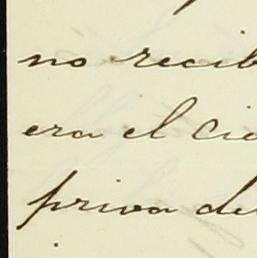 no recib
era el cie
priva de